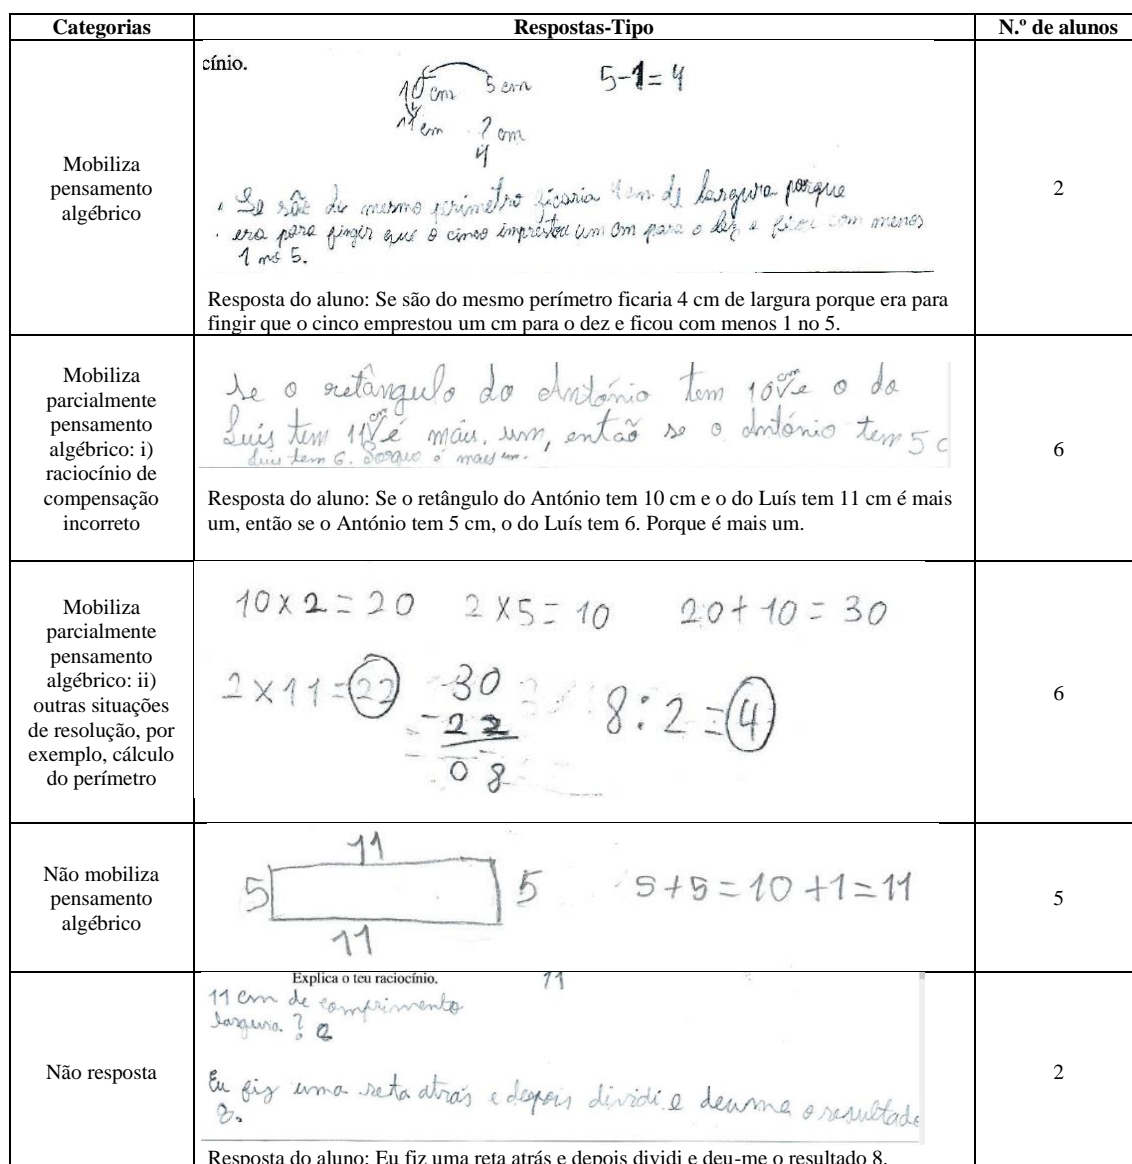 Categorias
Respostas-Tipo
N.º de alunos
Mobiliza
pensamento
algébrico
cínio.
10 cm 5 cm 5-1=4
11 cm ? cm
4
. Se são do mesmo perímetro ficaria 4 cm de largura porque
. era para fingir que o cinco imprestou um cm para o dez e ficou com menos
1 no 5.
Resposta do aluno: Se são do mesmo perímetro ficaria 4 cm de largura porque era para
fingir que o cinco emprestou um cm para o dez e ficou com menos 1 no 5.
2
Mobiliza
parcialmente
pensamento
algébrico: i)
raciocínio de
compensação
incorreto
se o retângulo do António tem 10 cm e o do
Luís tem 11 cm é mais um, então se o António tem 5 c
Luis tem 6. Porque é mais um.
Resposta do aluno: Se o retângulo do António tem 10 cm e o do Luís tem 11 cm é mais
um, então se o António tem 5 cm, o do Luís tem 6. Porque é mais um.
6
Mobiliza
parcialmente
pensamento
algébrico: ii)
outras situações
de resolução, por
exemplo, cálculo
do perímetro
10 x 2 = 20 2 x 5 = 10 20 + 10 = 30
2 x 11 = 22 30 8 : 2 = 4
- 22
= 08
6
Não mobiliza
pensamento
algébrico
11
5 5 5+5=10+1=11
11
5
Não resposta
Explica o teu raciocínio.
11
11 cm de comprimento
largura ?
Eu fiz uma reta atrás e depois dividi e deu-me o resultado
8.
Resposta do aluno: Eu fiz uma reta atrás e depois dividi e deu-me o resultado 8.
2